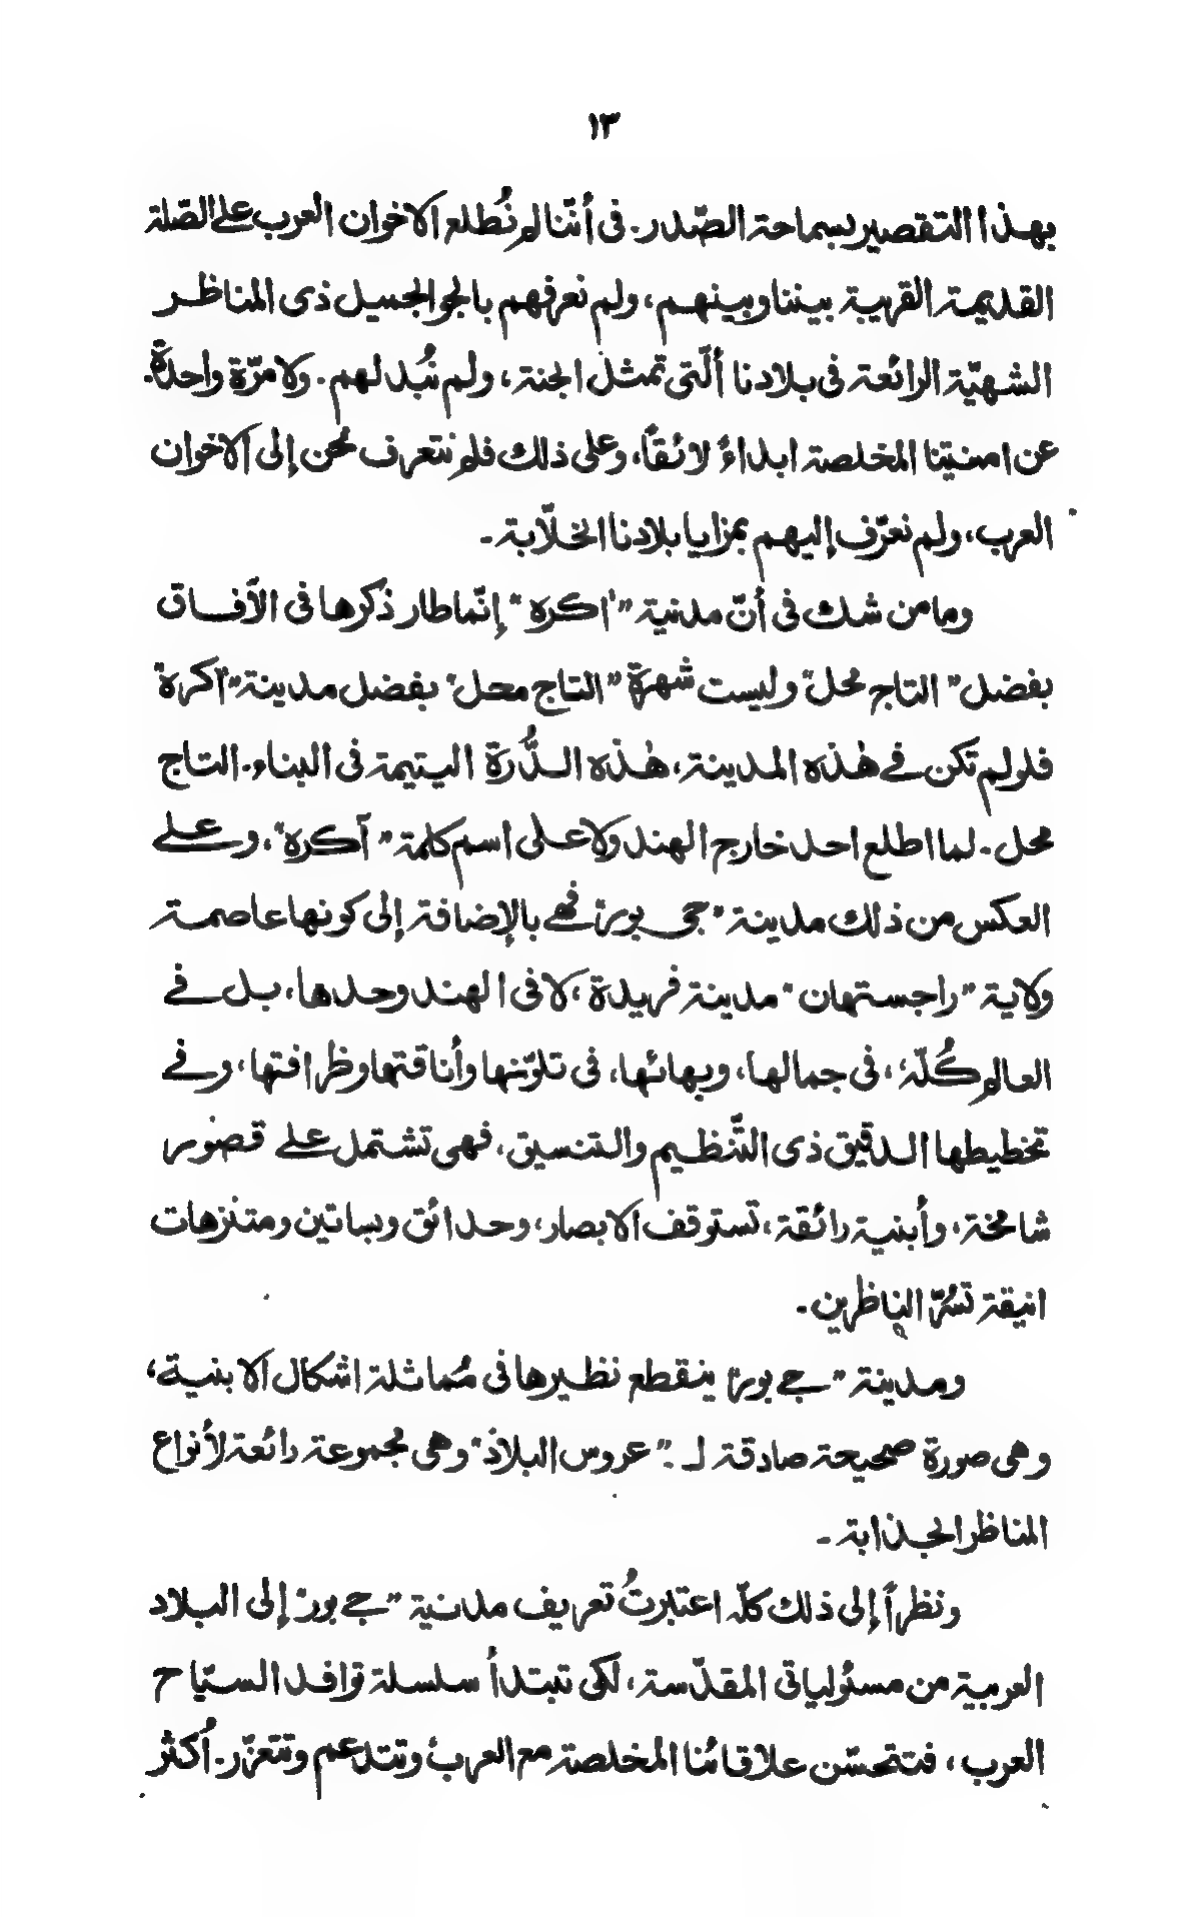 ١٣
بهذا التقصير بسماحة الصّدر. فى أنّنا لم نُطلع الاخوان العرب على الصّلة
القديمة القريبة بيننا وبينهم، ولم نعرفهم بالجو الجميل ذى المناظر
الشهيّة الرائعة فى بلادنا ألّتى تمثل الجنة، ولم نُبد لهم. ولا مرّة واحدة.
عن امنيتنا المخلصة ابداءً لائقاً، وعلى ذلك فلم نتعرف نحن إلى الاخوان
العرب، ولم نعرّف إليهم بمزايا بلادنا الخلّابة۔
وما من شك فى أنّ مدنية "اكره" إنّما طار ذكرها فى الآفاق
بفضل "التاج محل" وليست شهرة "التاج محل" بفضل مدينة "آكرة"
فلو لم تكن فے هٰذه المدينة، هٰذه الدُّرة اليتيمة فى البناء. التاج
محل۔ لما اطلع احد خارج الهند ولا على اسم كلمة "آكره"، وعلے
العكس من ذلك مدينة "جى بور" فهے بالإضافة إلى كونها عاصمة
ولاية "راجستهان" مدينة فريدة، لا فى الهند وحدها، بل فے
العالم كُلّه، فى جمالها، وبهائها، فى تلوّنها وأناقتها وظرافتها، وفے
تخطيطها الدقيق ذى التّنظيم والتنسيق، فهى تشتمل علے قصور
شامخة، وأبنية رائقة، تستوقف الابصار، وحدائق وبساتين ومتنزهات
انيقة تسُرّ الناظرين۔
ومدينة "جے بور" ينقطع نظيرها فى مُماثلة اشكال الابنية،
وهى صورة صحيحة صادقة لـ "عروس البلاد" وهى مجموعة رائعة لأنواع
المناظر الجذابة۔
ونظراً إلى ذلك كلّه اعتبرتُ تعريف مدنية "جے بور" إلى البلاد
العربية من مسئولياتى المقدّسة، لكى تبتدأ سلسلة توافد السيّاح
العرب، فتتحسّن علاقاتُنا المخلصة مع العرب وتتدعم وتتعزّر. أُكثر